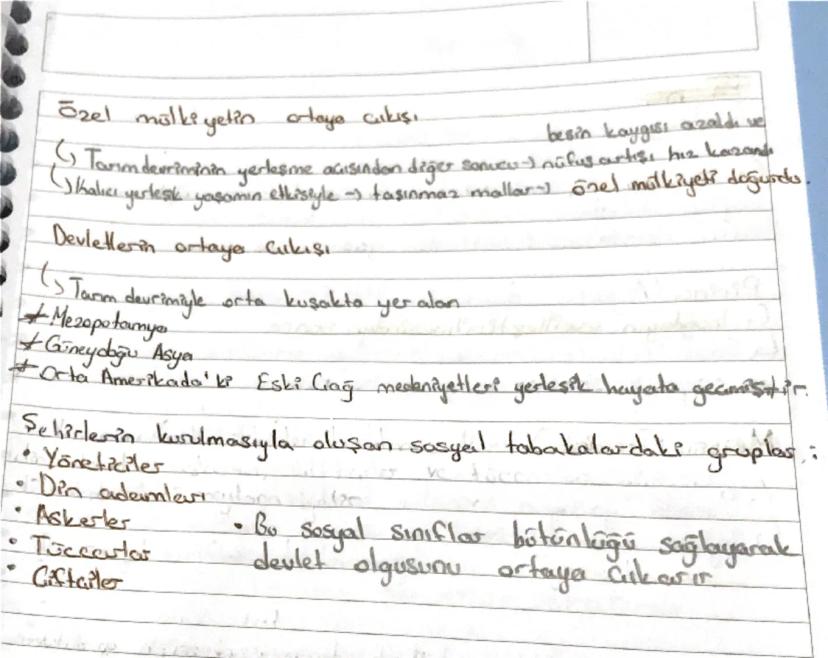 Özel mülkiyetin ortaya çıkışı
besin kaygısı azaldı ve
↳ Tarım devriminin yerleşme açısından diğer sonucu → nüfus artışı hız kazandı
↳ Kalıcı yerleşik yaşamın etkisiyle → taşınmaz mallar → özel mülkiyeti doğurdu.
Devletlerin ortaya çıkışı
↳ Tarım devrimiyle orta kuşakta yer alan
* Mezopotamya
* Güneydoğu Asya
* Orta Amerikada'ki Eski Çağ medeniyetleri yerleşik hayata geçmiştir.
Şehirlerin kurulmasıyla oluşan sosyal tabakalardaki gruplar:
• Yöneticiler
• Din adamları
• Askerler
• Tüccarlar
• Çiftçiler
• Bu sosyal sınıflar bütünlüğü sağlayarak
devlet olgusunu ortaya çıkarır